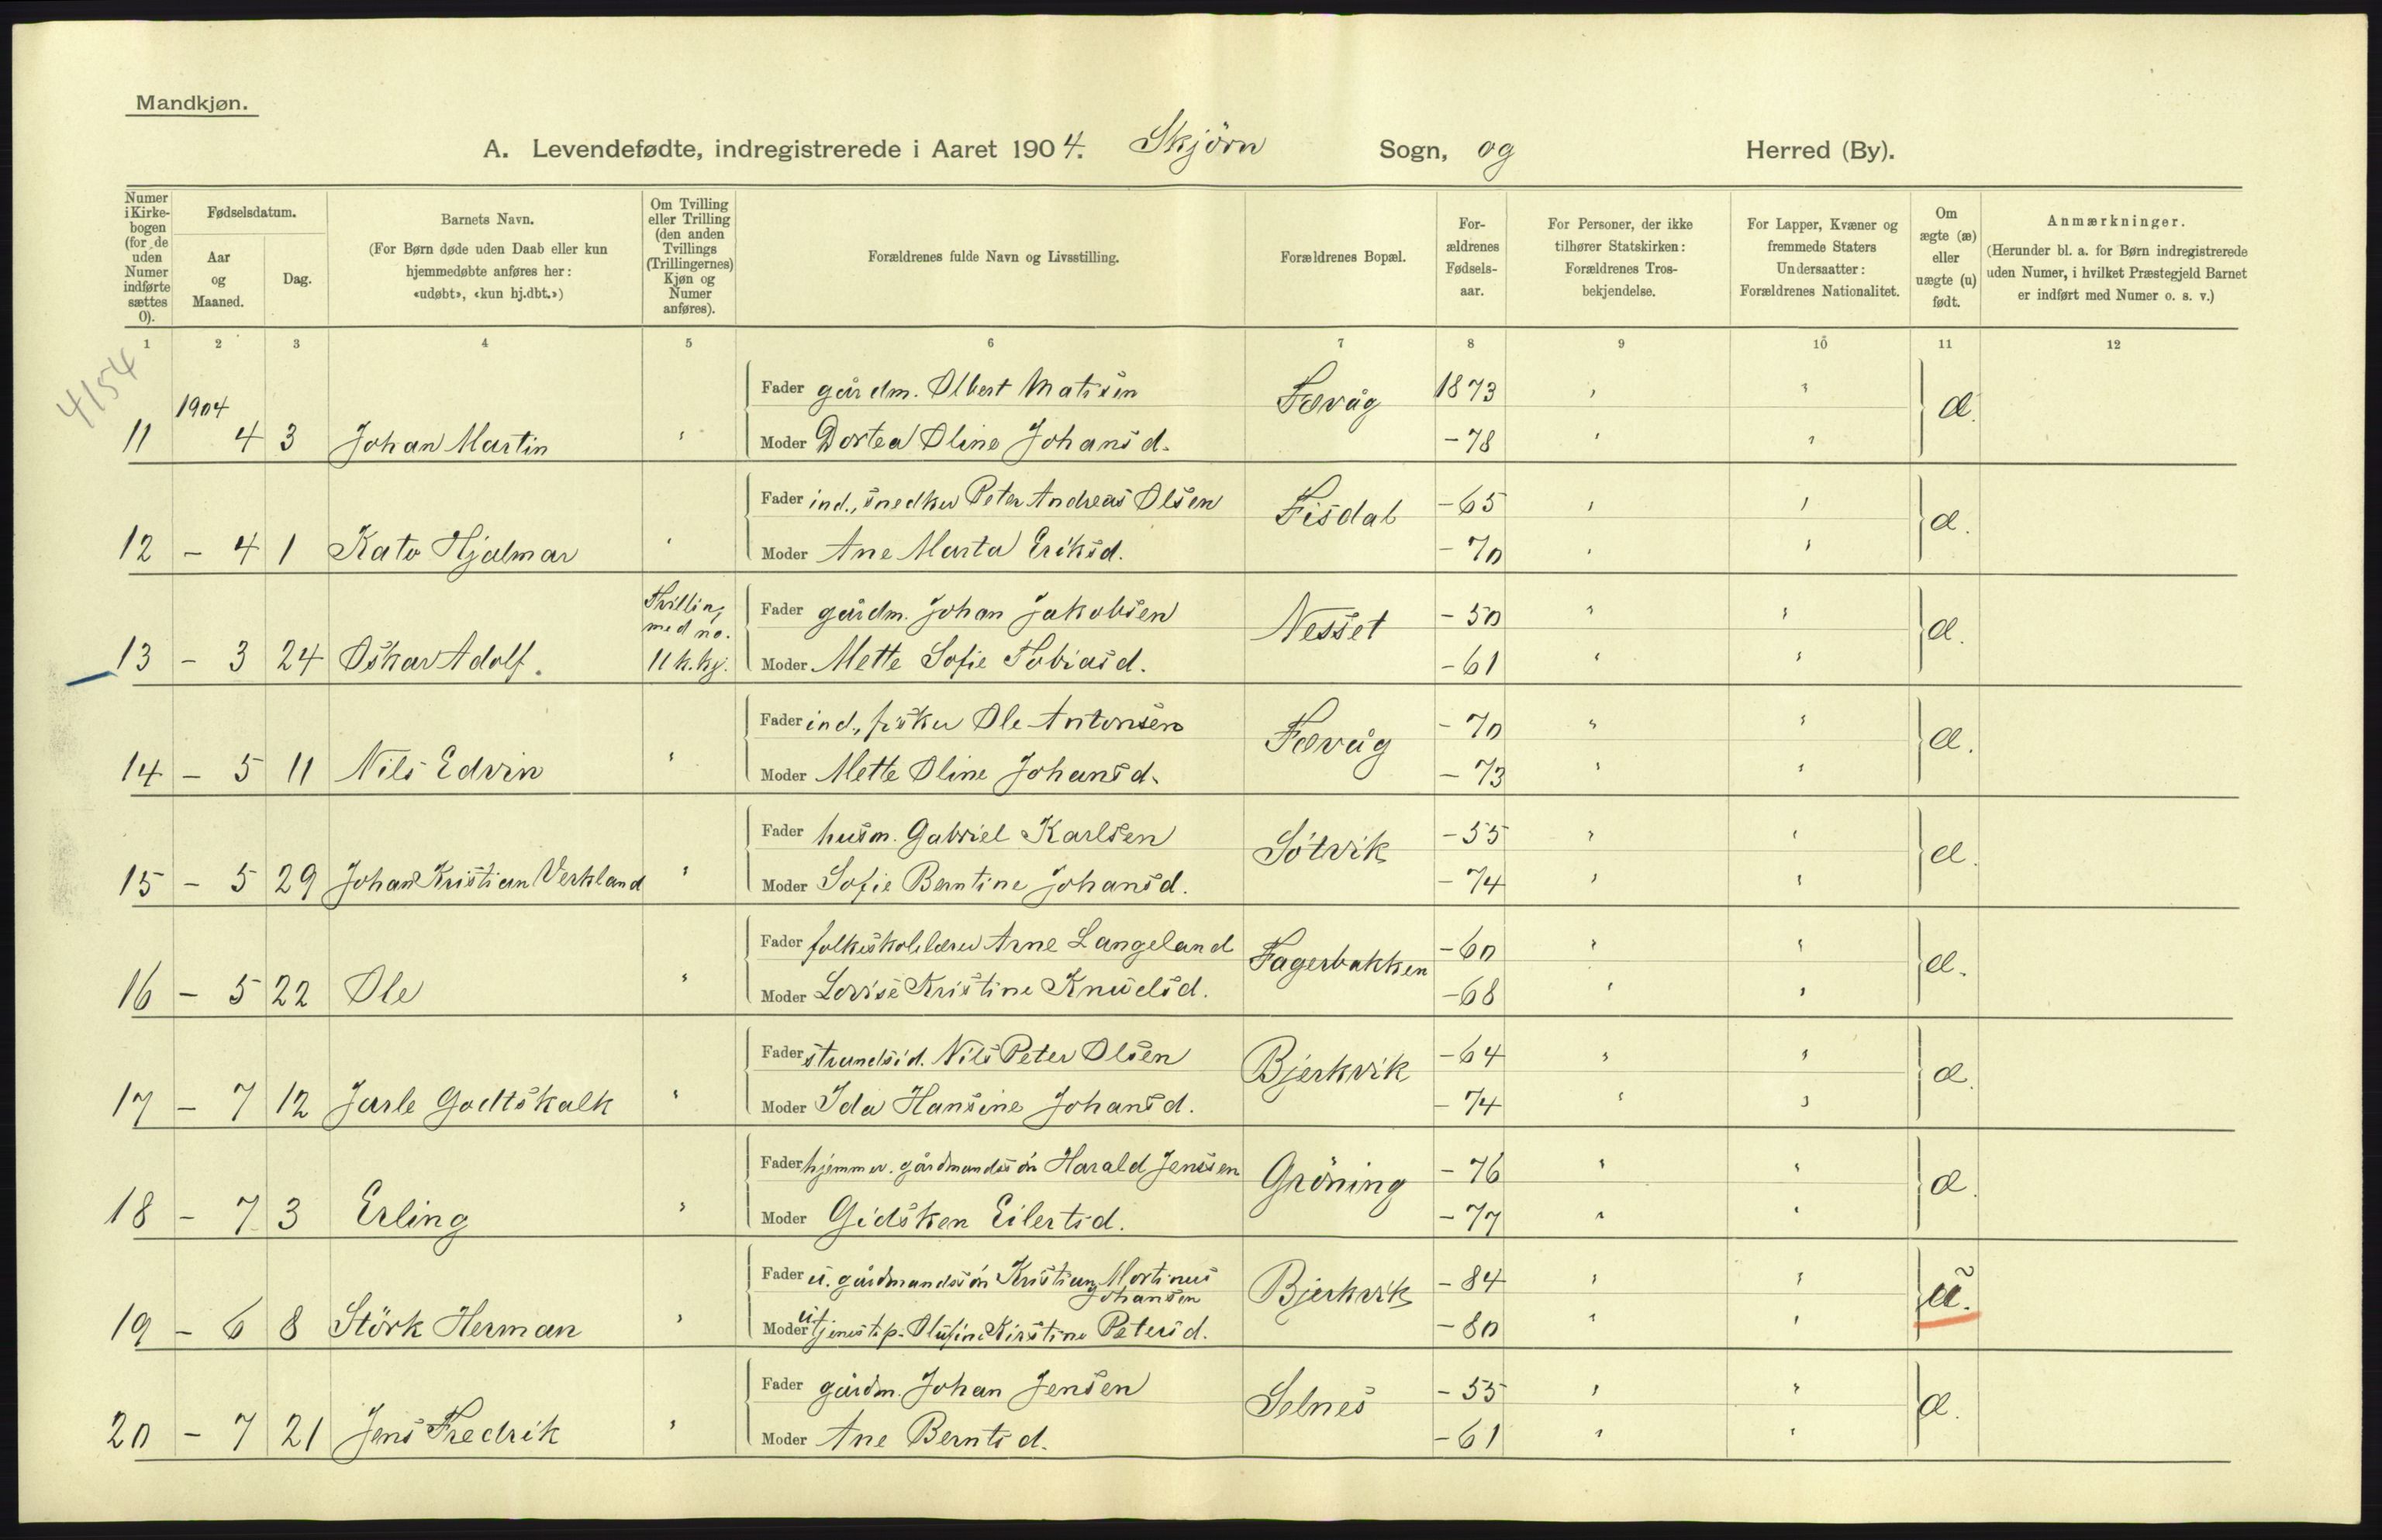 Mandkjøn.
A. Levendefødte, indregistrerede i Aaret 1904. Skjörn Sogn, og Herred (By).
Numer i Kirkebogen (for de uden Numer indførte sættes 0).
Fødselsdatum.
Aar og Maaned.
Dag.
Barnets Navn.
(For Børn døde uden Daab eller kun hjemmedøbte anføres her: «udøbt», «kun hj.dbt.»)
Om Tvilling eller Trilling (den anden Tvillings (Trillingernes) Kjøn og Numer anføres).
Forældrenes fulde Navn og Livsstilling.
Forældrenes Bopæl.
Forældrenes Fødselsaar.
For Personer, der ikke tilhører Statskirken: Forældrenes Trosbekjendelse.
For Lapper, Kvæner og fremmede Staters Undersaatter: Forældrenes Nationalitet.
Om ægte (æ) eller uægte (u) født.
Anmærkninger.
(Herunder bl. a. for Børn indregistrerede uden Numer, i hvilket Præstegjeld Barnet er indført med Numer o. s. v.)
1 2 3 4 5 6 7 8 9 10 11 12
4154
Fader gårdm. Olbert Matisen Fævåg 1873 " " æ.
11 1904 4 3 Johan Martin " Moder Dortea Oline Johansd. - 78 " "
Fader ind., snedker Peter Andreas Olsen Fisdal - 65 " " æ.
12 - 4 1 Kato Hjalmar " Moder Ane Marta Eriksd. - 70 " "
Tvilling med no. 11 k.kj. Fader gårdm. Johan Jakobsen Nesset - 50 " " æ.
13 - 3 24 Oskar Adolf. Moder Mette Sofie Tobiasd. - 61 " "
Fader ind., fisker Ole Antonsen Fævåg - 70 " " æ.
14 - 5 11 Nils Edvin " Moder Mette Oline Johansd. - 73 " "
Fader husm. Gabriel Karlsen Sötvik - 55 " " æ.
15 - 5 29 Johan Kristian Verkland " Moder Sofie Berntine Johansd. - 74 " "
Fader folkeskolelærer Arne Langeland Fagerbakken - 60 " " æ.
16 - 5 22 Ole " Moder Lovise Kristine Knudsd. - 68 " "
Fader strandsid. Nils Peter Olsen Bjerkvik - 64 " " æ.
17 - 7 12 Jarle Godtskalk " Moder Ida Hansine Johansd. - 74 " "
Fader hjemmev. gårdmandssön Harald Jenssen Gröning - 76 " " æ.
18 - 7 3 Erling " Moder Gidsken Eilertsd. - 77 " "
Fader u. gårdmandssön Kristian Mortinus Johansen Bjerkvik - 84 " " u.
19 - 6 8 Störk Herman " Moder u. tjenestep. Olufine Kirstine Petersd. - 80 " "
Fader gårdm. Johan Jensen Selnes - 55 " " æ.
20 - 7 21 Jens Fredrik " Moder Ane Berntsd. - 61 " "